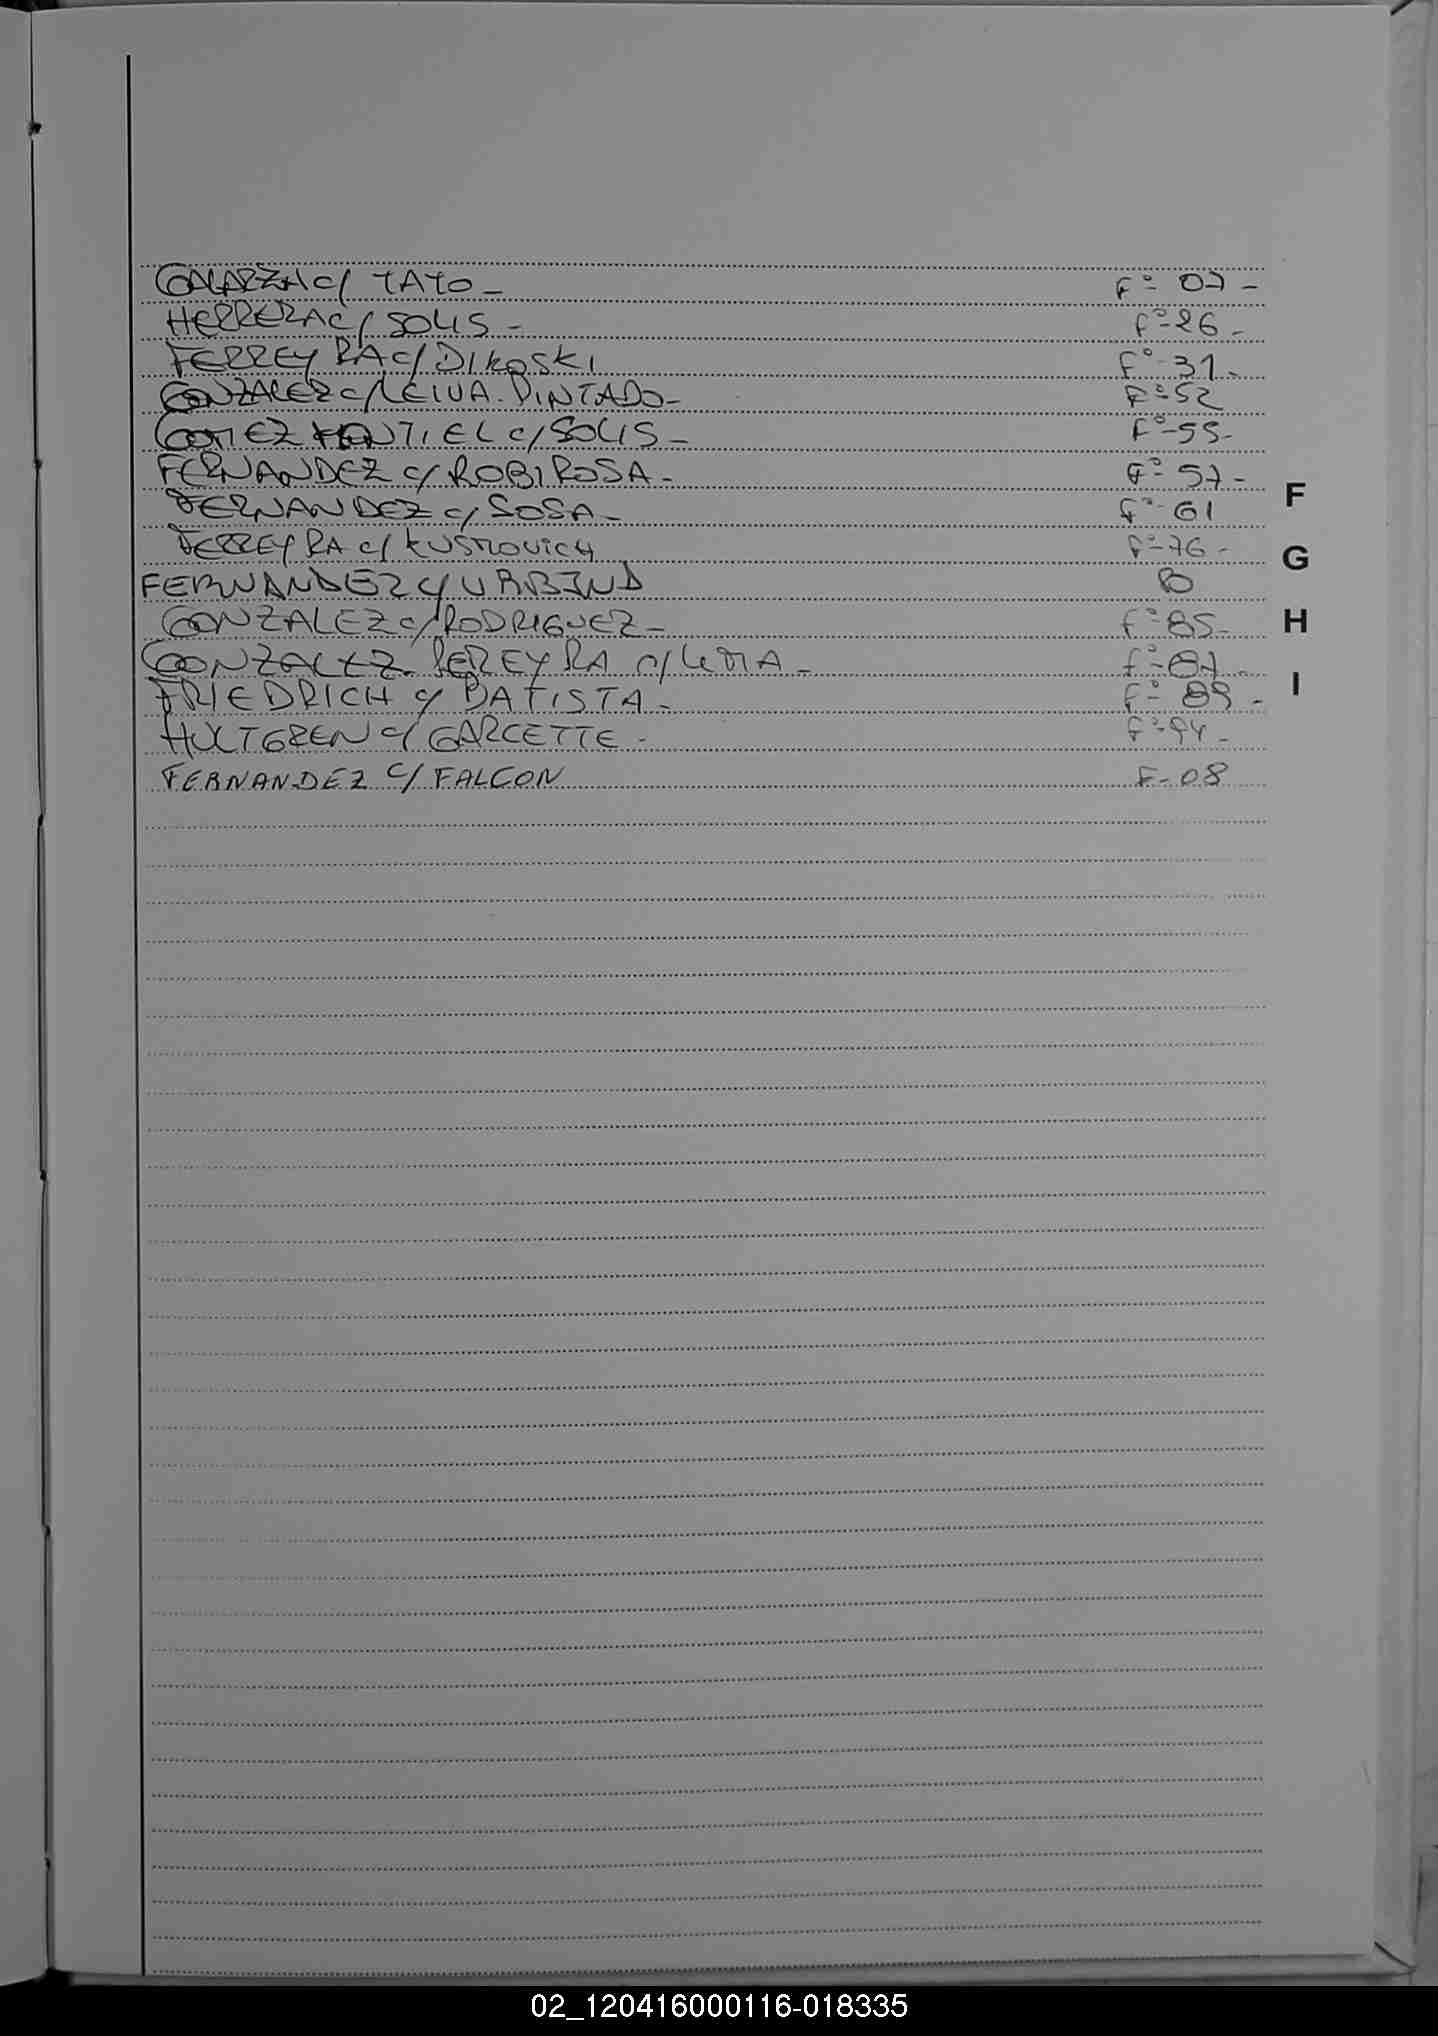 GALARZA c/ TATO - F° 07 -
HERRERA c/ SOLIS - F° 26 -
FERREYRA c/ DIKOSKI F° 31 -
GONZALEZ c/ LEIVA. PINTADO - F° 52
GOMEZ MONTIEL c/ SOLIS - F° 55 -
FERNANDEZ c/ ROBIROSA - F° 57 -
FERNANDEZ c/ SOSA - F° 61
FERREYRA c/ KUSTROVICH F° 76 -
FERNANDEZ c/ URBIND 80
GONZALEZ c/ RODRIGUEZ - F° 85 -
GONZALEZ. PEREYRA c/ LEMA - F° 87 -
FRIEDRICH c/ BATISTA - F° 89 -
HULTGREN c/ GARCETTE - F° 94 -
FERNANDEZ c/ FALCON F- 08
F
G
H
I
02_120416000116-018335